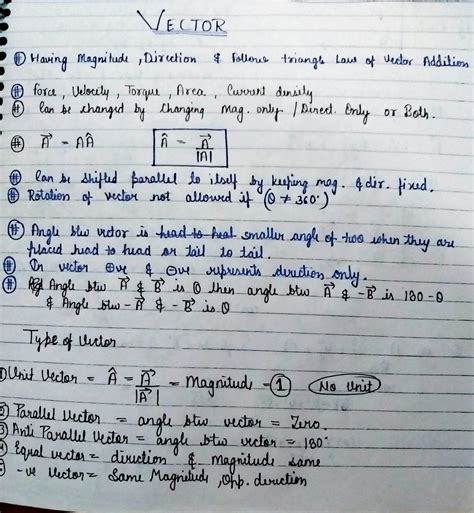 VECTOR
# Having Magnitude, Direction & Follows triangle Law of Vector Addition
# Force, Velocity, Torque, Area, Current density
# Can be changed by changing Mag. only / Direct. Only or Both.
# A⃗ = AÂ Â = A⃗/|A⃗|
# Can be shifted parallel to itself by keeping mag. & dir. fixed.
# Rotation of vector not allowed if (θ ≠ 360°)
# Angle btw vector is head to heat smaller angle of two when they are
placed head to head or tail to tail.
# In vector ⊕ve & ⊖ve represents direction only.
# Angle btw A⃗ & B⃗ is θ then angle btw A⃗ & -B⃗ is 180 - θ
& Angle btw -A⃗ & -B⃗ is θ
Type of Vector
1) Unit Vector = Â = A⃗/|A⃗| = Magnitude - 1 (No Unit)
2) Parallel Vector = angle btw vector = Zero.
3 Anti Parallel Vector = angle btw vector = 180°
4 Equal vector = direction & magnitude same
-ve Vector = Same Magnitude, Opp. direction